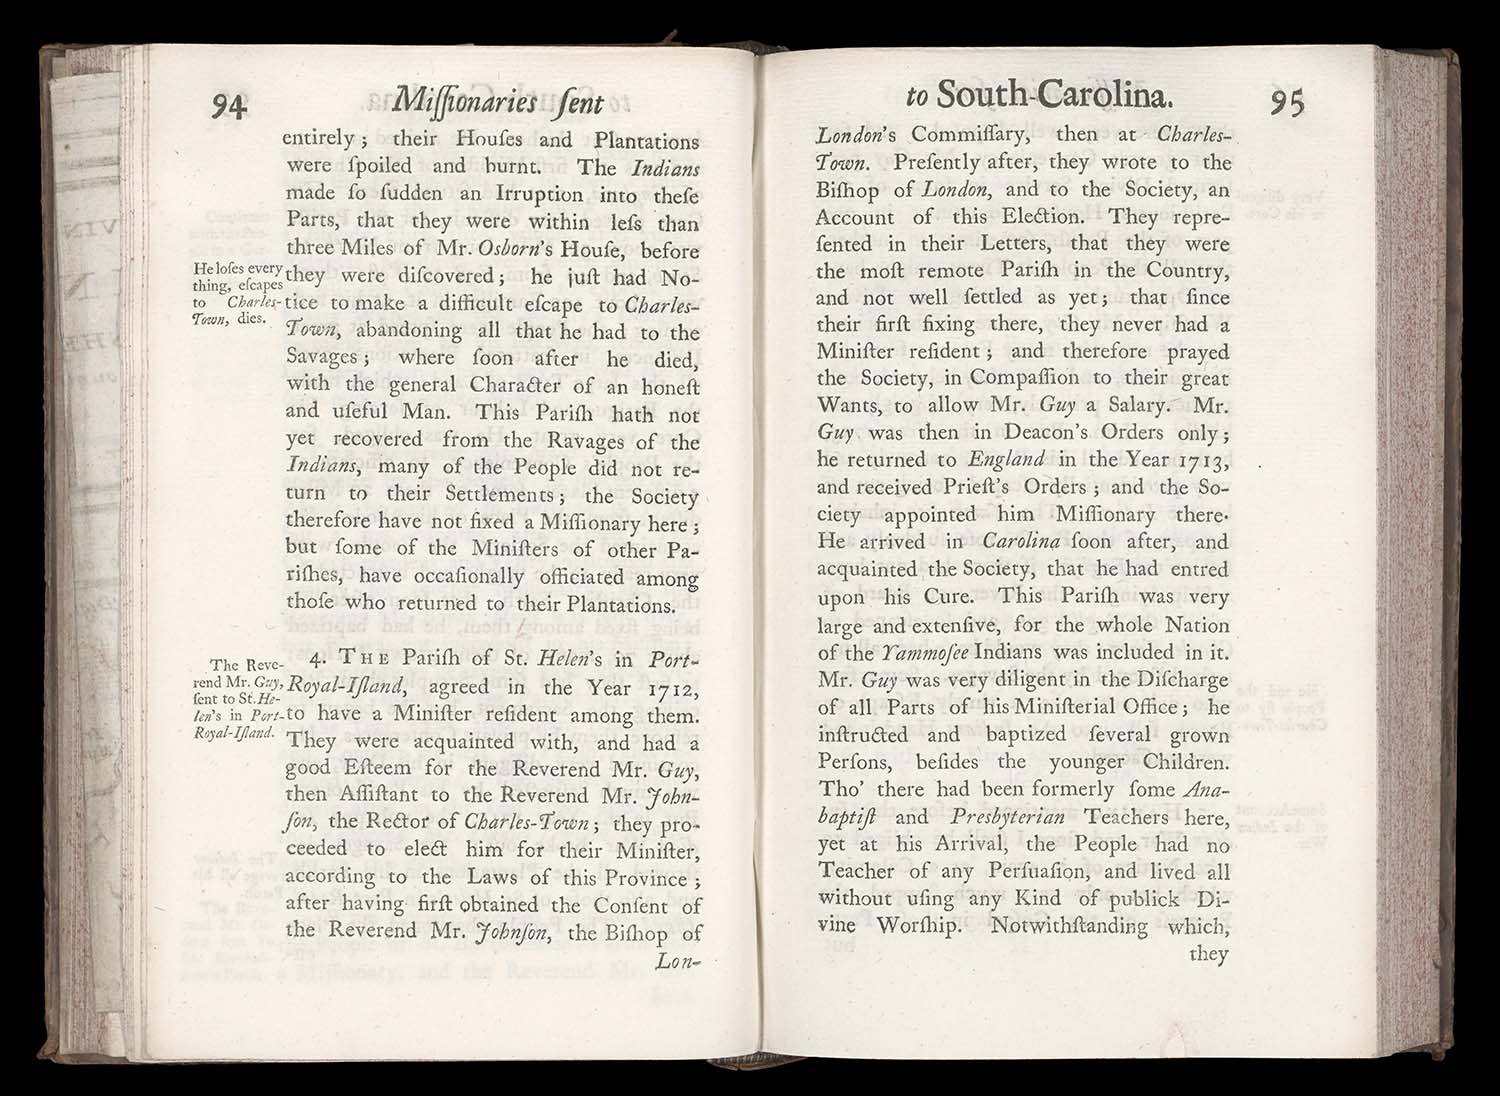 94
Miſſionaries ſent
entirely ; their Houſes and Plantations
were ſpoiled and burnt. The Indians
made ſo ſudden an Irruption into theſe
Parts, that they were within leſs than
three Miles of Mr. Osborn's Houſe, before
they were diſcovered ; he juſt had No-
tice to make a difficult eſcape to Charles-
Town, abandoning all that he had to the
Savages ; where ſoon after he died,
with the general Character of an honeſt
and uſeful Man. This Pariſh hath not
yet recovered from the Ravages of the
Indians, many of the People did not re-
turn to their Settlements ; the Society
therefore have not fixed a Miſſionary here ;
but ſome of the Miniſters of other Pa-
riſhes, have occaſionally officiated among
thoſe who returned to their Plantations.
He loſes every
thing, eſcapes
to Charles-
Town, dies.
4. THE Pariſh of St. Helen's in Port-
Royal-Iſland, agreed in the Year 1712,
to have a Miniſter reſident among them.
They were acquainted with, and had a
good Eſteem for the Reverend Mr. Guy,
then Aſſiſtant to the Reverend Mr. John-
ſon, the Rector of Charles-Town ; they pro-
ceeded to elect him for their Miniſter,
according to the Laws of this Province ;
after having firſt obtained the Conſent of
the Reverend Mr. Johnſon, the Biſhop of
Lon-
The Reve-
rend Mr. Guy,
ſent to St. He-
len's in Port-
Royal-Iſland.
to South-Carolina.
95
London's Commiſſary, then at Charles-
Town. Preſently after, they wrote to the
Biſhop of London, and to the Society, an
Account of this Election. They repre-
ſented in their Letters, that they were
the moſt remote Pariſh in the Country,
and not well ſettled as yet ; that ſince
their firſt fixing there, they never had a
Miniſter reſident ; and therefore prayed
the Society, in Compaſſion to their great
Wants, to allow Mr. Guy a Salary. Mr.
Guy was then in Deacon's Orders only ;
he returned to England in the Year 1713,
and received Prieſt's Orders ; and the So-
ciety appointed him Miſſionary there.
He arrived in Carolina ſoon after, and
acquainted the Society, that he had entred
upon his Cure. This Pariſh was very
large and extenſive, for the whole Nation
of the Yammoſee Indians was included in it.
Mr. Guy was very diligent in the Diſcharge
of all Parts of his Miniſterial Office ; he
inſtructed and baptized ſeveral grown
Perſons, beſides the younger Children.
Tho' there had been formerly ſome Ana-
baptiſt and Presbyterian Teachers here,
yet at his Arrival, the People had no
Teacher of any Perſuaſion, and lived all
without uſing any Kind of publick Di-
vine Worſhip. Notwithſtanding which,
they